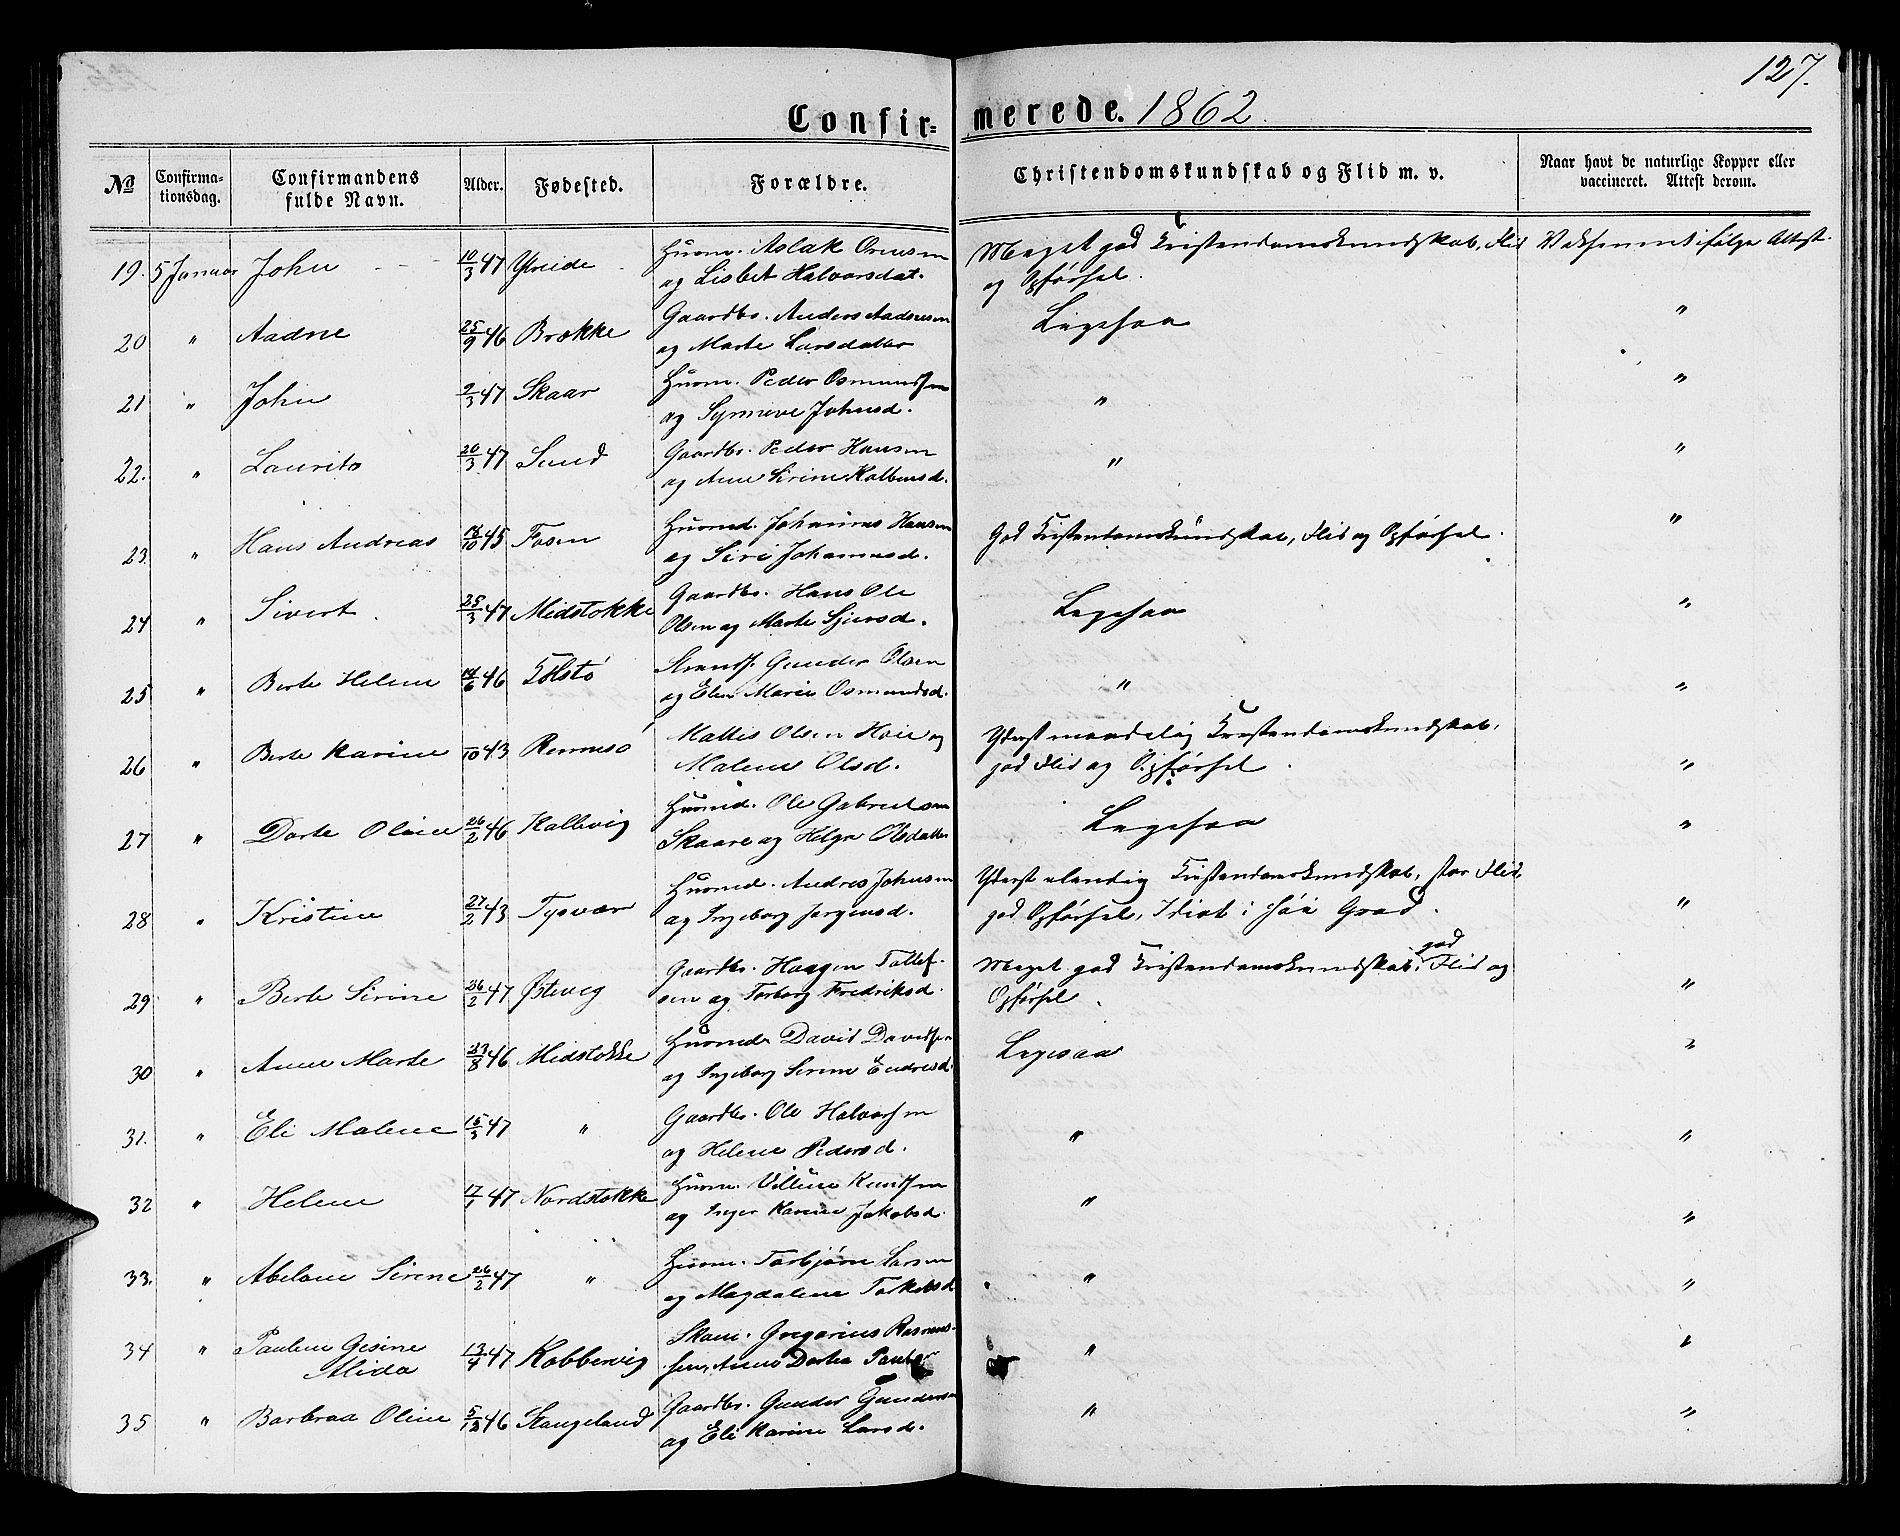 127.
Confir= merede. 1862.
No Confirma- tionsdag. Confirmandens fulde Navn. Alder. Fødested. Forældre. Christendomskundskab og Flid m. v. Naar havt de naturlige Kopper eller vaccineret. Attest derom.
19. 5 Januar John 10/3 47 Huusm. Aslak Ormsen Meget god Kristendomskundskab, Flid Vaksineret ifølge Attest.
og Lisbet Halvorsdat. og Opførsel.
20 " Aadne 25/9 46 Brekke Gaardbr. Anders Aadnesen Ligesaa "
og Marte Larsdatter
21 " John 2/3 47 Skaar Huusm. Peder Osmundsen " "
og Synneve Johnsd.
22. " Laurits 20/3 47 Sund Gaardbr. Peder Hansen " "
og Ane Serine Kolbensd.
23. " Hans Andreas 45 Fosen Huusmd. Johannes Hansen God Kristendomskundskab, Flid og Opførsel. "
og Siri Johannesd.
24 " Sivert. 25/3 47 Midstokke Gaardbr. Hans Ole Ligesaa "
Olsen og Marte Sjursd.
25 " Berte Helene 46 Strands. Gunder Olsen " "
og Elen Marie Osmundsd.
26 " Berte Karine /10 43 Rennesø Mattis Olsen Hoie og Yderst maadelig Kristendomskundskab,
Malene Olsd. god Flid og Opførsel. "
27 " Dorte Oline 26/2 46 Kallevig Huusmd. Ole Gabrielsen Ligesaa "
Skaare og Helga Olsdatter
28 " Kristine 27/2 43 Tysvær Huusmd. Andres Johnsen Yderst elendig Kristendomskundskab, stor Flid,
og Ingeborg Jørgensd. god Opførsel, Idiot i høi Grad. "
29 " Berte Serine 26/2 47 Østevig Gaardbr. Haagen Tollef- Meget god Kristendomskundskab, god Flid og
sen og Torborg Fredriksd. Opførsel. "
30 " Anne Marte 23/8 46 Midstokke Huusmd. David Davidsen Ligesaa "
og Ingeborg Serine Endresd.
31. " Eli Malene 15/3 47 " Gaardbr. Ole Halvorsen " "
og Helene Pedersd.
32 " Helene 17/1 47 Nordstokke Huusm. Villum Knudsen " "
og Inger Karine Jakobsd.
33. " Abelone Serine 26/2 47 " Huusm. Torbjørn Larsen " "
og Magdalene Torkelsd.
34 " Pauline Gesine 13/4 47 Kobbervig Gregorius Rasmus- " "
Alida sen, Anne Dortea
35 " Barbraa Oline 5/12 46 Stangeland Gaardbr. Gunder Gundersen " "
og Eli Karine Larsd.